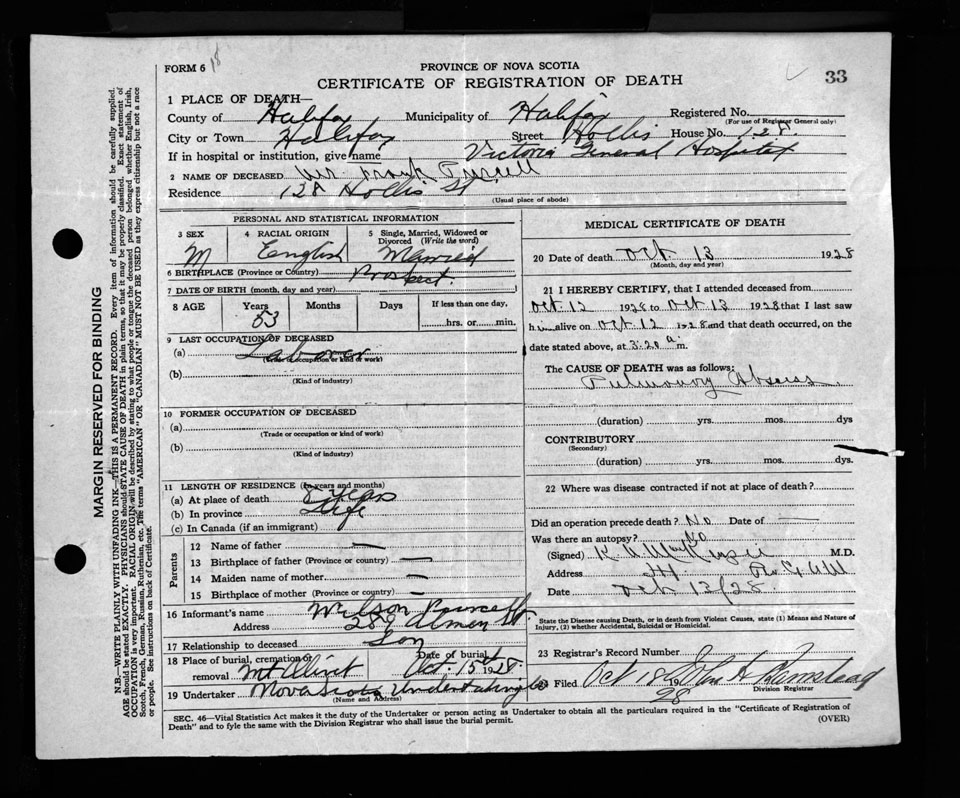 FORM 6
PROVINCE OF NOVA SCOTIA
CERTIFICATE OF REGISTRATION OF DEATH
33
1 PLACE OF DEATH—
County of Halifax Municipality of Halifax Registered No.
(For use of Registrar General only)
City or Town Halifax Street Hollis House No. 128.
If in hospital or institution, give name Victoria General Hospital
2 NAME OF DECEASED Mr Frank Purcell
Residence Hollis St.
(Usual place of abode)
PERSONAL AND STATISTICAL INFORMATION
3 SEX 4 RACIAL ORIGIN 5 Single, Married, Widowed or
Divorced (Write the word)
M English Married
6 BIRTHPLACE (Province or Country) Prospect.
7 DATE OF BIRTH (month, day and year)
8 AGE Years Months Days If less than one day,
53 hrs. or min.
9 LAST OCCUPATION OF DECEASED
(a) Laborer
(Trade occupation or kind of work)
(b)
(Kind of industry)
10 FORMER OCCUPATION OF DECEASED
(a)
(Trade or occupation or kind of work)
(b)
(Kind of industry)
11 LENGTH OF RESIDENCE (In years and months)
(a) At place of death 8 years
(b) In province Life
(c) In Canada (if an immigrant)
Parents
12 Name of father —
13 Birthplace of father (Province or country) —
14 Maiden name of mother —
15 Birthplace of mother (Province or country) —
16 Informant's name Wilson Purcell
Address 289 Almon St.
17 Relationship to deceased Son
18 Place of burial, cremation or removal Mt Olivet Date of burial Oct. 15th 1928.
19 Undertaker Nova Scotia Undertaking Co
(Name and Address)
MEDICAL CERTIFICATE OF DEATH
20 Date of death Oct. 13 1928
(Month, day and year)
21 I HEREBY CERTIFY, that I attended deceased from
Oct 12 1928 to Oct 13 1928 that I last saw
him alive on Oct 12 1928 and that death occurred, on the
date stated above, at 3.20 a m.
The CAUSE OF DEATH was as follows:
Pulmonary Abscess.
(duration) yrs. mos. dys
CONTRIBUTORY
(Secondary)
(duration) yrs. mos. dys.
22 Where was disease contracted if not at place of death?
Did an operation precede death? No Date of —
Was there an autopsy? No
(Signed) M.D.
Address
Date Oct 13/28
State the Disease causing Death, or in death from Violent Causes, state (1) Means and Nature of
Injury, (2) whether Accidental, Suicidal or Homicidal.
23 Registrar's Record Number
24 Filed Oct 18 28
Division Registrar
SEC. 46—Vital Statistics Act makes it the duty of the Undertaker or person acting as Undertaker to obtain all the particulars required in the "Certificate of Registration of
Death" and to fyle the same with the Division Registrar who shall issue the burial permit.
(OVER)
MARGIN RESERVED FOR BINDING
N.B.—WRITE PLAINLY WITH UNFADING INK—THIS IS A PERMANENT RECORD. Every item of information should be carefully supplied.
AGE should be stated EXACTLY. PHYSICIANS should STATE CAUSE OF DEATH in plain terms, so that it may be properly classified. Exact statement of
OCCUPATION is very important. RACIAL ORIGIN will be described by stating to what people or tongue the deceased person belonged whether English, Irish,
Scotch, French, German, Russian, Ruthenian, etc. The terms "AMERICAN" OR "CANADIAN" MUST NOT BE USED as they express citizenship but not a race
or people. See instructions on back of Certificate.